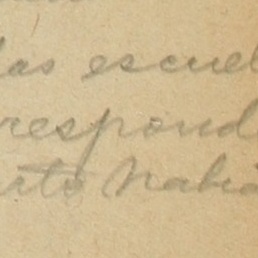 las escuel
respond
arto había